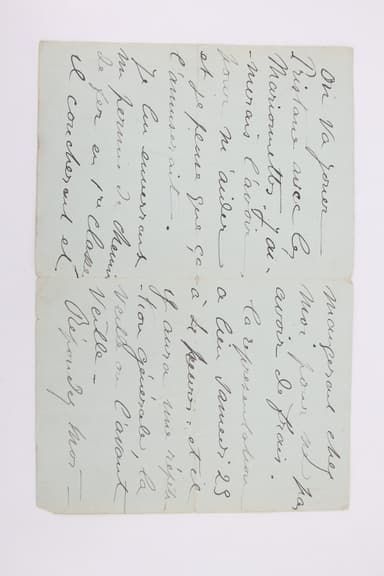 On va jouer
Tristane avec les
Marionnettes. J'ai-
merais l'avoir
pour m'aider
et je pense que ça
l'amuserait.
Je lui enverrais
un permis de chemin
de fer en 1re classe
il coucherait et
mangerait chez
moi pour ne pas
avoir de frais.
La représentation
a lieu Samedi 25
à 2 heures. et il
y aura une répéti-
tion générale la
veille ou l'avant
veille -
Répondez moi -